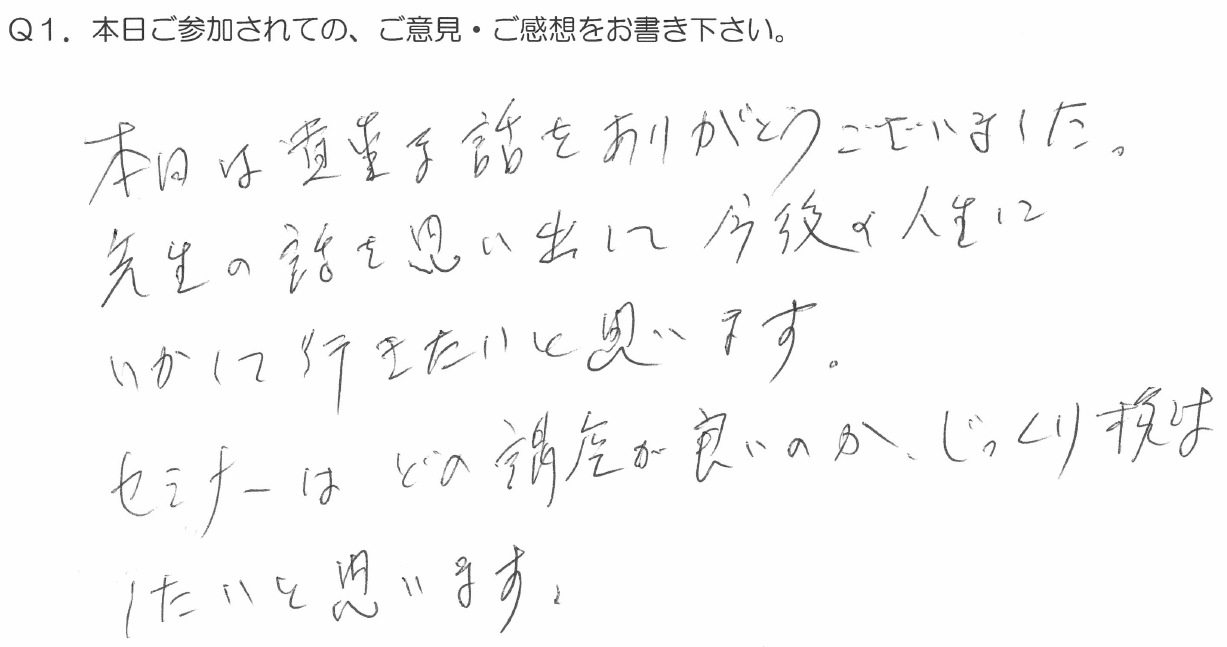 Q1. 本日ご参加されての、ご意見・ご感想をお書き下さい。
本日は貴重な話をありがとうございました。
先生の話を思い出して今後の人生に
いかして行きたいと思います。
セミナーはどの講座が良いのか、じっくり検討
したいと思います。